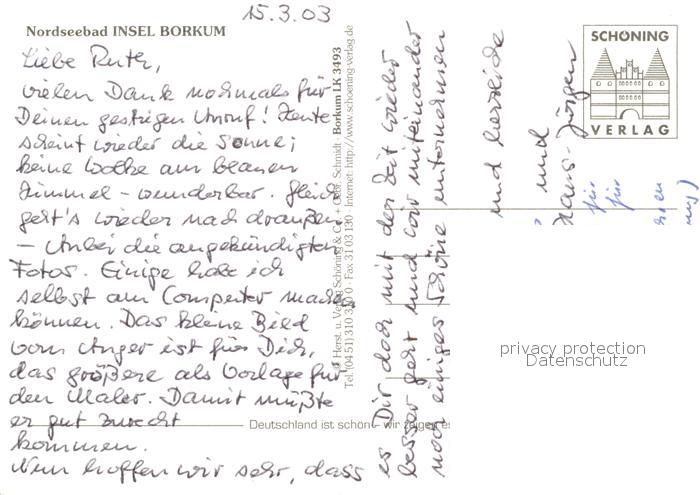 15.3.03
Nordseebad INSEL BORKUM
Liebe Ruth,
vielen Dank nochmals für
Deinen gestrigen Anruf! Heute
scheint wieder die Sonne;
keine Wolke am blauen
Himmel - wunderbar. Gleich
geht's wieder nach draußen.
- Anbei die angekündigten
Fotos. Einige habe ich
selbst am Computer machen
können. Das kleine Bild
vom Anger ist für Dich,
das größere als Vorlage für
den Maler. Damit müßte
er gut zurecht
kommen.
Nun hoffen wir sehr, dass
es Dir doch mit der Zeit wieder
besser geht und wir miteinander
noch einiges Schöne unternehmen
und herzliche
und
Hans-Jürgen
für
für
© Herst. u. Verlag Schöning & Co. + Gebr. Schmidt · Borkum LK 3493
Tel. (0451) 310 3 0 · Fax 31 03 130 · Internet: http://www.schoening-verlag.de
Deutschland ist schön - wir zeigen es
SCHÖNING
VERLAG
privacy protection
Datenschutz